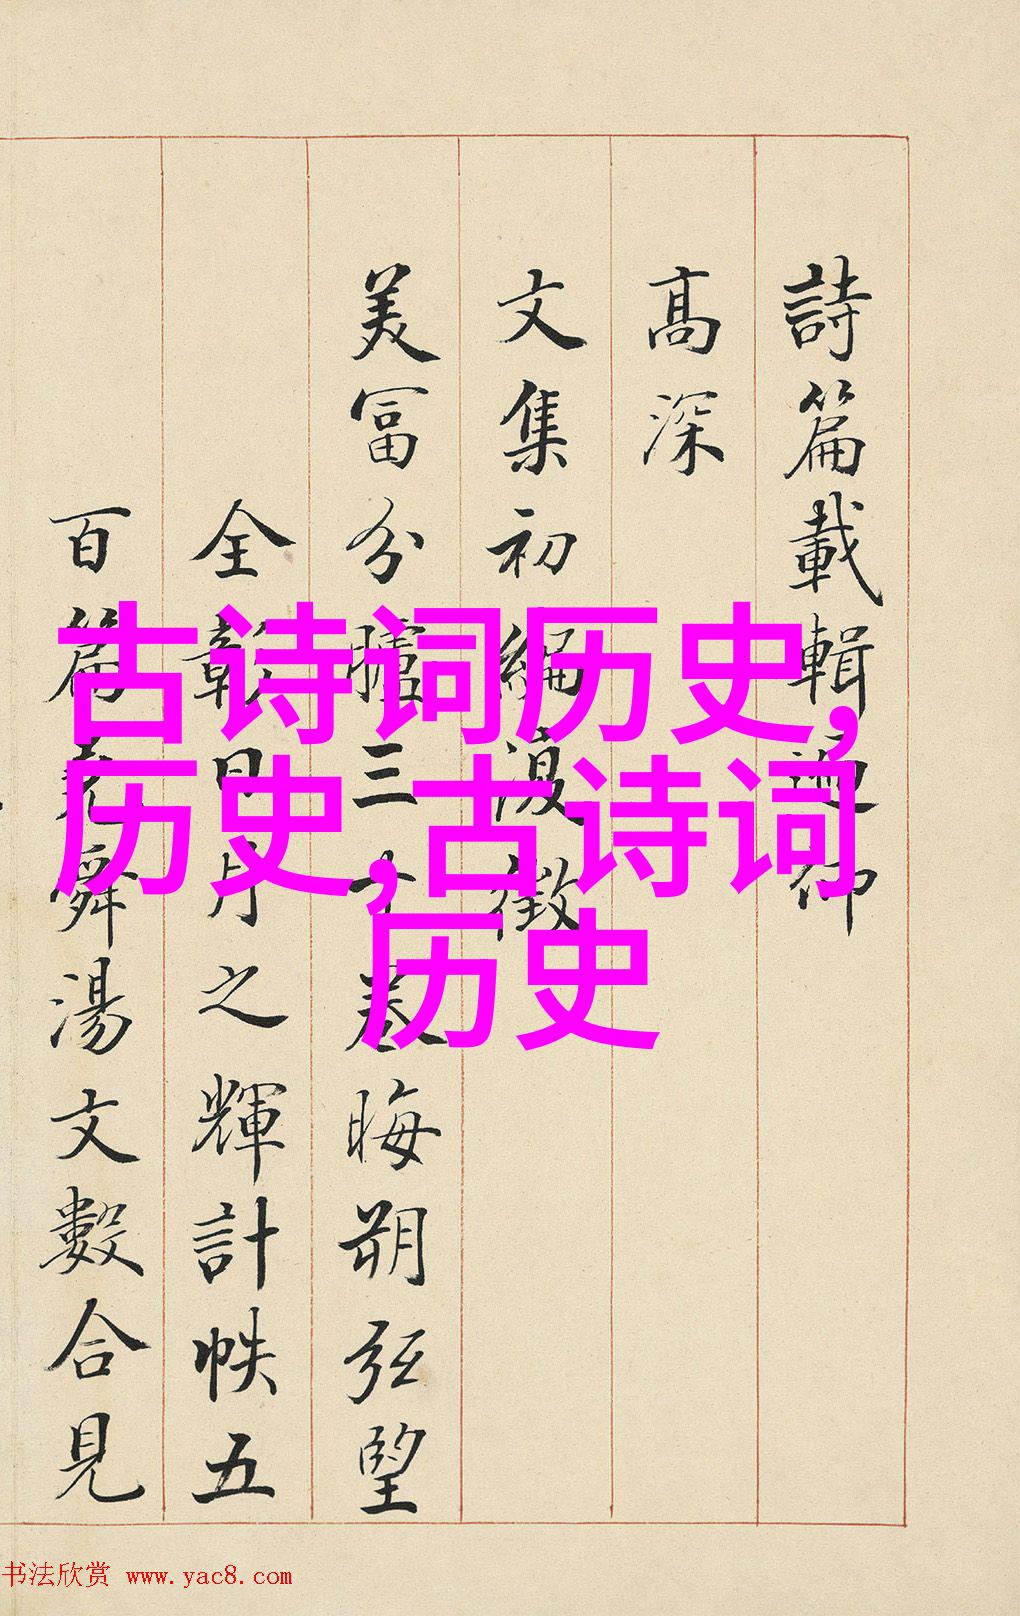 詩篇載輯仰
髙深
文集初編復徵
美富分臚三十卷晦朔弦望
全彰日月之輝計帙五
百篇堯舜湯文數合見
古诗词历史,
历史,古诗词
历史
书法欣赏 www.yac8.com